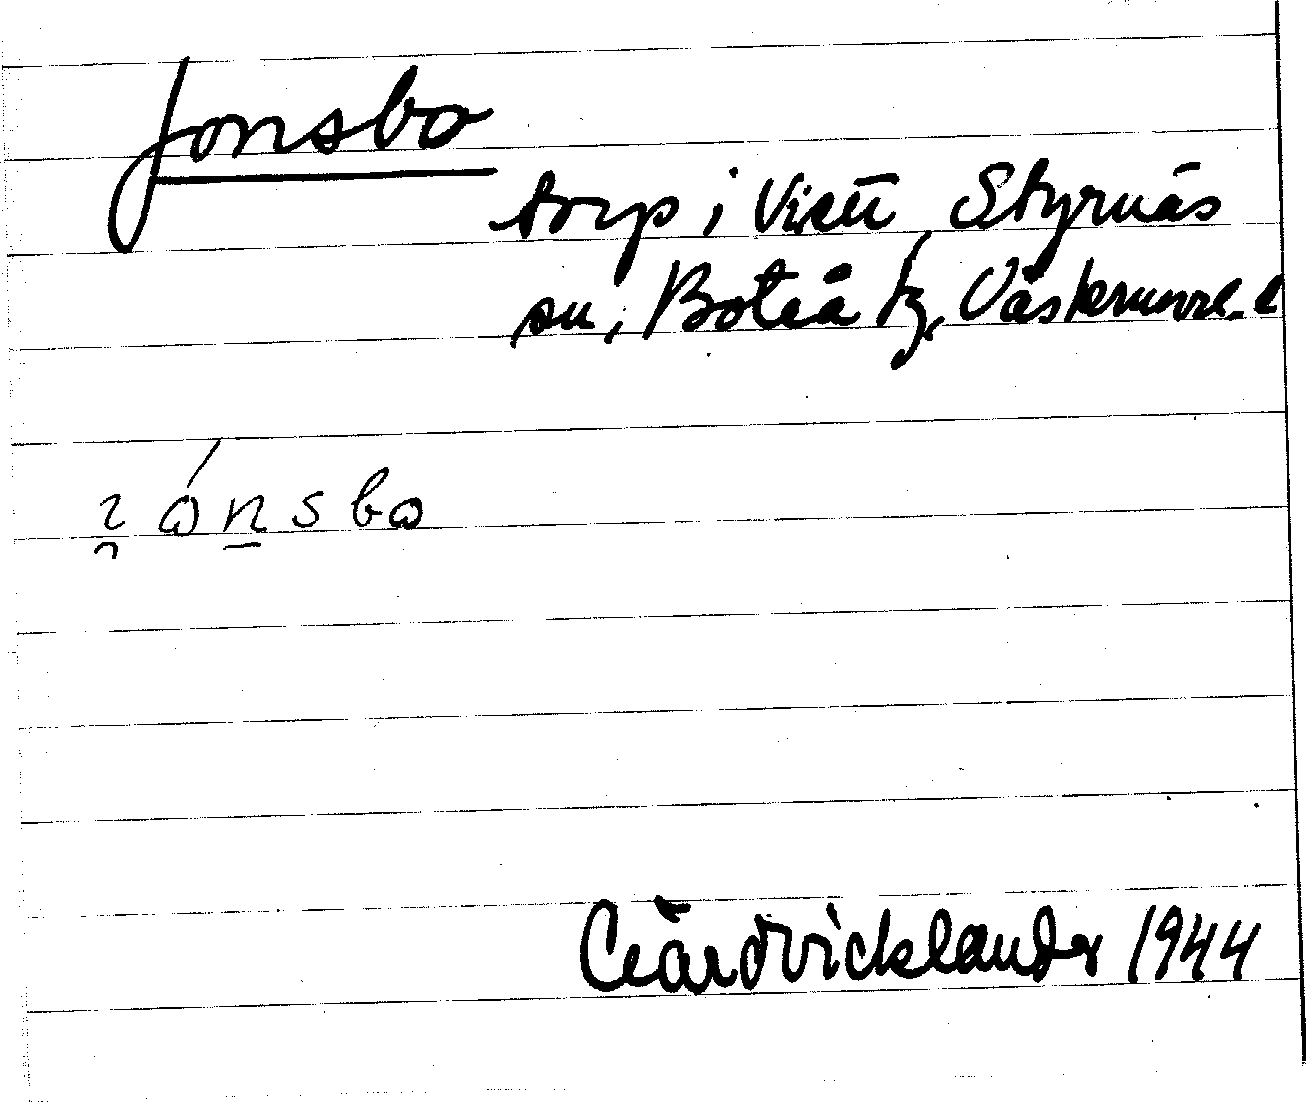 Jonsbo
torp i Vistt, Styrnäs
sn, Boteå tg, Västernorrl. l
ɿ̯ ó n̲ s b ω
Ceärdvicklander 1944